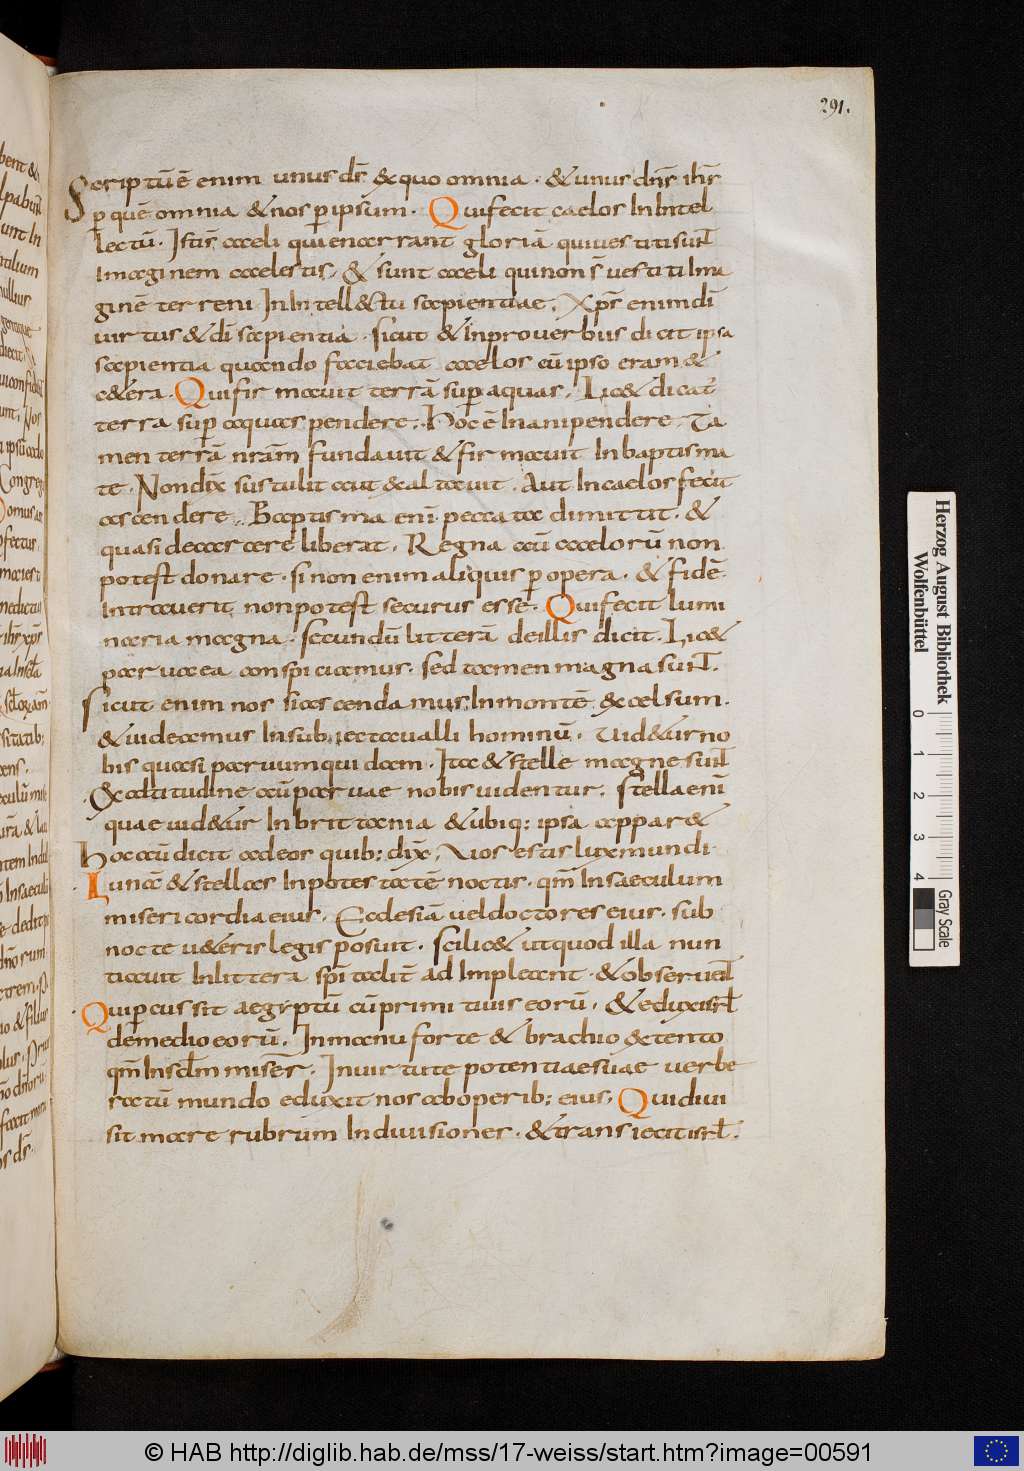 291.
Scriptū ē enim unus ds̄ ex quo omnia · & unus dn̄s ih̄s
p quē omnia & nos p ipsum · Qui fecit caelos In Intel
lectū · Isti s̄ caeli qui enarrant gloriā qui vestiti sunt
Imaginem caelestis, & sunt caeli qui non s̄ vestiti Ima
ginē terreni In Intell&tu sapientiae. Xps̄ enim dī
uirtus & dī sapientia · sicut & In prouerbiis dicit ipsa
sapientia quando faciebat caelos cū ipso eram &
c&era. Qui firmauit terrā sup aquas. Lic& dicat
terra sup aquas pendere. Hoc ē Inani pendere. Ta
men terrā nr̄am fundauit & firmauit In baptisma
te · Non dix̄ sustulit aut exaltauit. Aut In caelos fecit
ascendere. Baptisma enī peccata dimittit. &
quasi de carcere liberat. Regna aū caelorū non
potest donare · si non enim aliquis p opera · & fidē
Intrauerit non potest securus esse. Qui fecit lumi
naria magna · secundū litterā de illis dicit. Lic&
parua ea conspiciamus. sed tamen magna sunt.
Sicut enim nos si ascendamus In montē excelsum.
& uideamus In subiecta ualli hominū. Uid&ur no
bis quasi paruum quidam. Ita & stelle magne sunt
Ex altitudine aū paruae nobis uidentur. stella enī
quae uid&ur In brittania & ubiq; ipsa appar&
hoc aū dicit ad eos quib; dix̄, Uos estis lux mundi
Lunā & stellas In potestatē noctis. qm̄ In saeculum
misericordia eius. Ecclesiā uel doctores eius. sub
nocte u&eris legis posuit. scilic& ut quod illa nun
tiauit In littera sp̄italit̄ ad Impleant · & obseruent
Qui pcussit aegiptū cū primitiuis eorū. & eduxit isrl̄
de medio eorū. In manu forte & brachio extento
qm̄ In sc̄lm miser̄. In uirtute potentiae suae uerbe
ratū mundo eduxit nos ab operib; eius. Qui diui
sit mare rubrum In diuisiones · & transiecit isrl̄.
Herzog August Bibliothek
Wolfenbüttel
0 1 2 3 4
Gray Scale
© HAB http://diglib.hab.de/mss/17-weiss/start.htm?image=00591